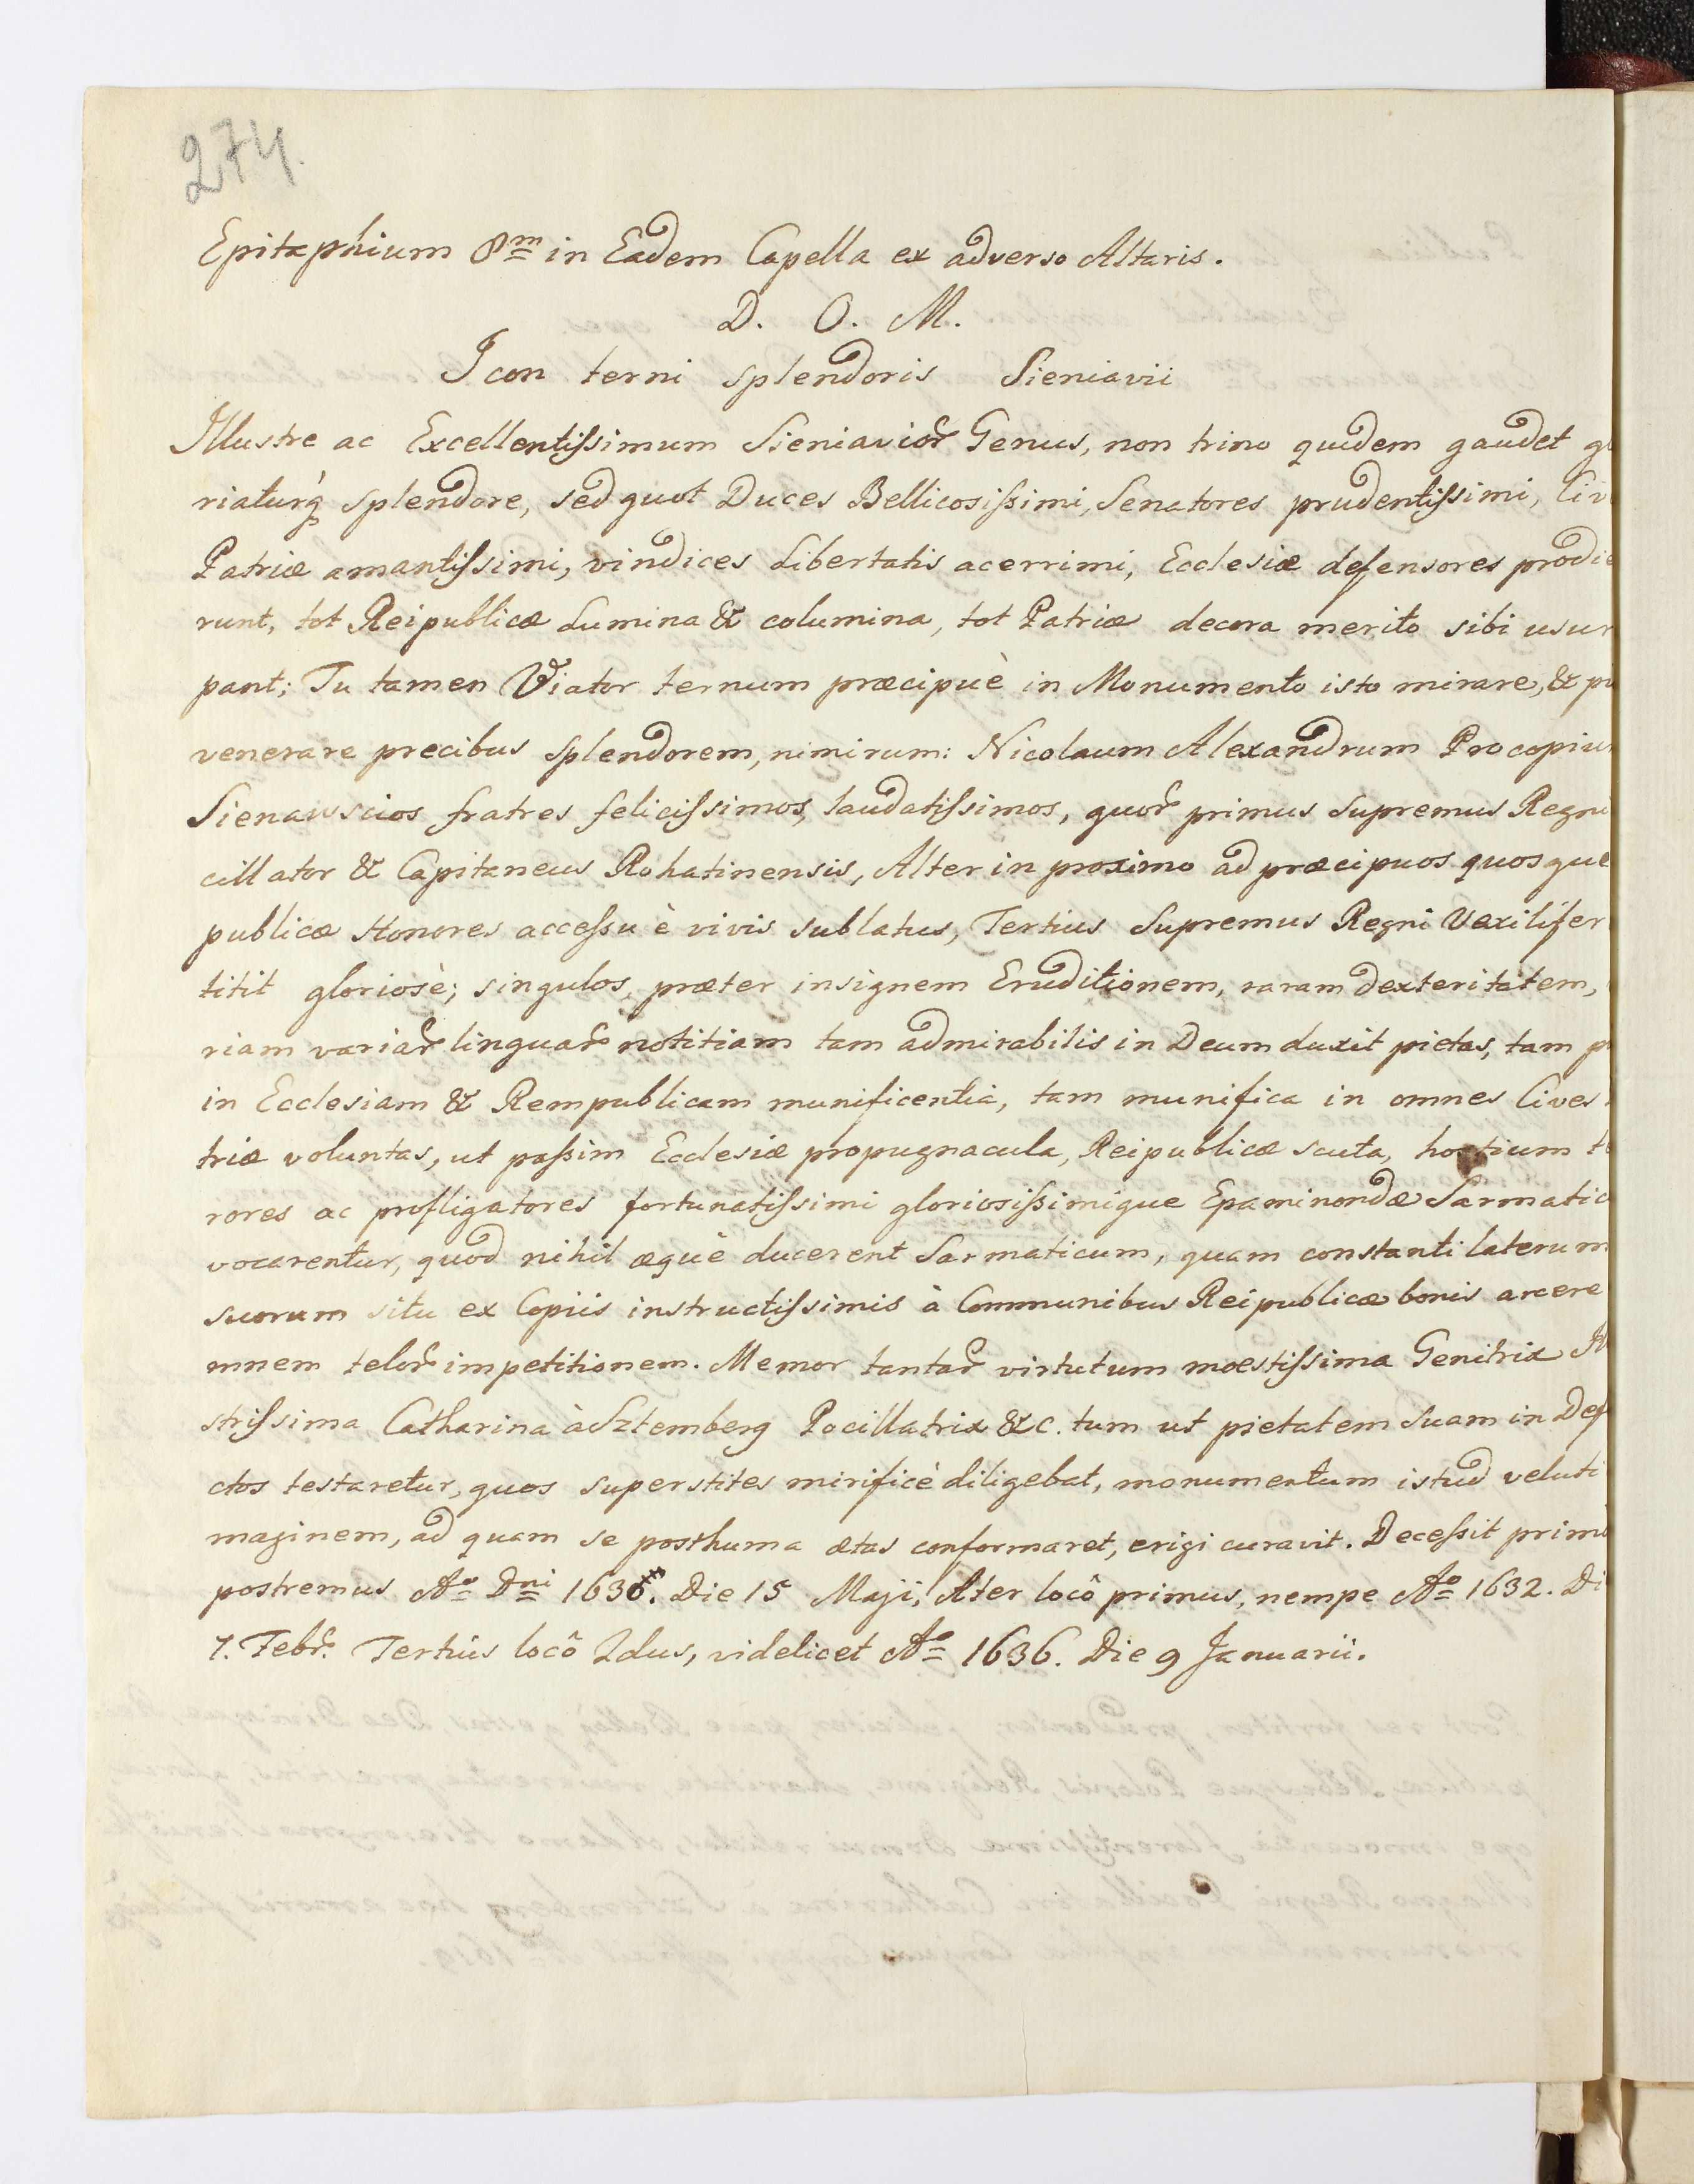 274.
Epitaphium 8m in Eadem Capella ex adverso Altaris.
D. O. M.
Icon terni splendoris Sieniavii
Illustre ac Excellentiſsimum Sieniavior Genus, non trino quidem gaudet gl
riaturq́ splendore, sed quot Duces Bellicosiſsimi, Senatores prudentiſsimi, Civ
Patriæ amantiſsimi, vindices Libertatis acerrimi, Ecclesiæ defensores prodie
runt, tot Reipublicæ Lumina & columina, tot Patriæ decora merito sibi usur
pant; Tu tamen Viator ternum præcipuè in Monumento isto mirare, & pi
venerare precibus splendorem, nimirum: Nicolaum Alexandrum Procopiu
Sienawscios fratres feliciſsimos, laudatiſsimos, quor primus Supremus Regni
cillator & Capitaneus Rohatinensis, Alter in proximo ad præcipuos quosque
publicæ Honores acceſsu è vivis sublatus, Tertius Supremus Regni Vexilifer
titit gloriosè; singulos, præter insignem Eruditionem, raram dexteritatem,
riam variar linguar notitiam tam admirabilis in Deum duxit pietas, tam p
in Ecclesiam & Rempublicam munificentia, tam munifica in omnes Cives
triæ voluntas, ut paſsim Ecclesiæ propugnacula, Reipublicæ scuta, hostium te
rores ac profligatores fortunatiſsimi gloriosiſsimique Epaminondæ Sarmatic
vocarentur, quod nihil æquè ducerent Sarmaticum, quam constanti laterum
suorum situ ex Copiis instructiſsimis à Communibus Reipublicæ bonis arcere
mnem telor impetitionem. Memor tantar virtutum moestiſsima Genitrix Il
striſsima Catharina à Sztemberg Pocillatrix &c. tum ut pietatem Suam in Def
ctos testaretur, quos superstites mirificè diligebat, monumentum istud veluti
maginem, ad quam se posthuma ætas conformaret, erigi curavit. Deceſsit primo
postremus Ao Dni 1636. Die 15 Maji, Alter locô primus, nempe Ao 1632. Di
7. Febr. Tertius locô 2dus, videlicet Ao 1636. Die 9 Januarii.